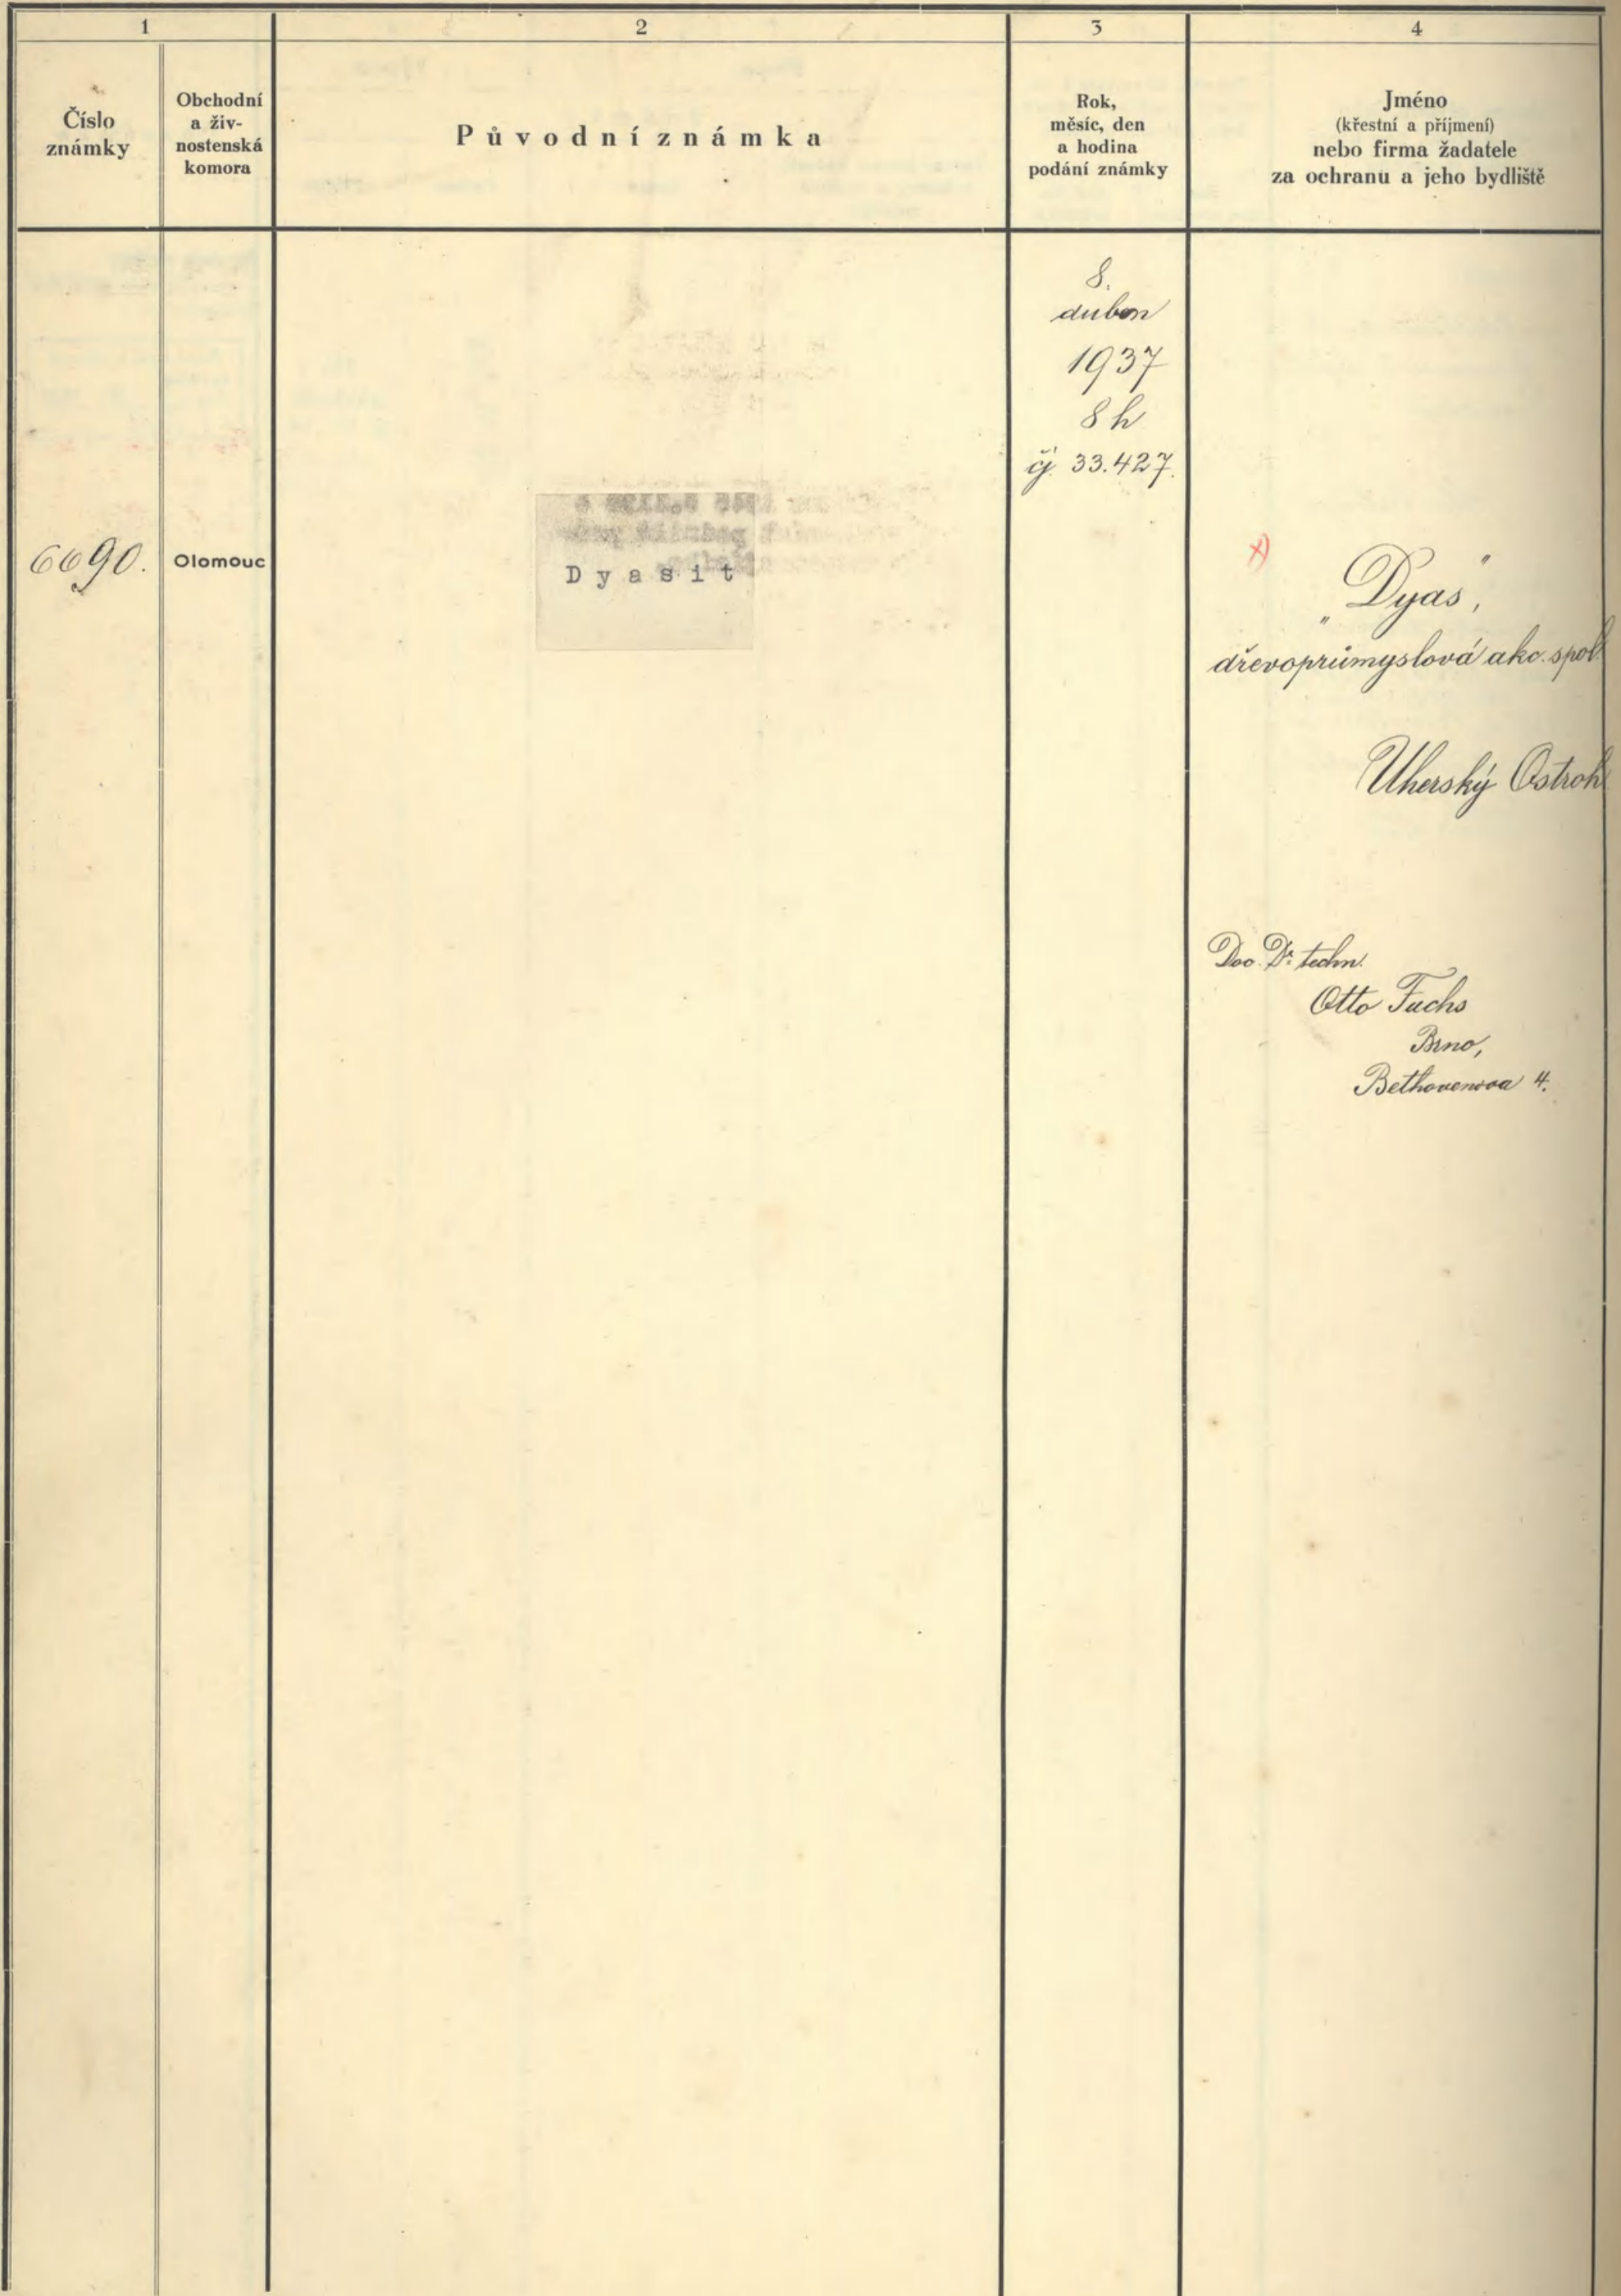 1
2
3
4
Číslo
známky
Obchodní
a živ-
nostenská
komora
Původní známka
Rok,
měsíc, den
a hodina
podání známky
Jméno
(křestní a příjmení)
nebo firma žadatele
za ochranu a jeho bydliště
8.
duben
1937
8 h
čj. 33.427.
6690.
Olomouc
Dyasit
x)
„Dyas",
dřevoprůmyslová akc. spol.
Uherský Ostroh
Doc. Dr. techn.
Otto Fuchs
Brno,
Bethovenova 4.